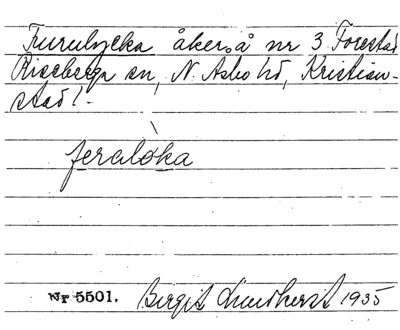 Furulycka åker, å nr 3 Forestad
Riseberga sn, N. Åsbo hd, Kristian-
stad l.
feralö̀ka
Nr 5501. Birgit 1935